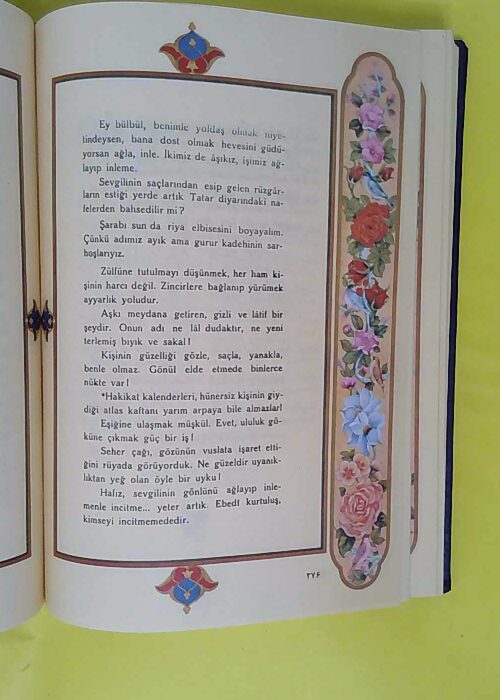 Ey bülbül, benimle yoldaş olmak niye-
tindeysen, bana dost olmak hevesini güdü-
yorsan ağla, inle. İkimiz de âşıkız, işimiz ağ-
layıp inleme.
Sevgilinin saçlarından esip gelen rüzgâr-
ların estiği yerde artık Tatar diyarındaki na-
felerden bahsedilir mi?
Şarabı sun da riya elbisesini boyayalım.
Çünkü adımız ayık ama gurur kadehinin sar-
hoşlarıyız.
Zülfüne tutulmayı düşünmek, her ham ki-
şinin harcı değil. Zincirlere bağlanıp yürümek
ayyarlık yoludur.
Aşkı meydana getiren, gizli ve lâtif bir
şeydir. Onun adı ne lâl dudaktır, ne yeni
terlemiş bıyık ve sakal!
Kişinin güzelliği gözle, saçla, yanakla,
benle olmaz. Gönül elde etmede binlerce
nükte var!
*Hakikat kalenderleri, hünersiz kişinin giy-
diği atlas kaftanı yarım arpaya bile almazlar!
Eşiğine ulaşmak müşkül. Evet, ululuk gö-
küne çıkmak güç bir iş!
Seher çağı, gözünün vuslata işaret etti-
ğini rüyada görüyorduk. Ne güzeldir uyanık-
lıktan yeğ olan öyle bir uyku!
Hafız, sevgilinin gönlünü ağlayıp inle-
menle incitme... yeter artık. Ebedî kurtuluş,
kimseyi incitmemededir.
۳۷۶